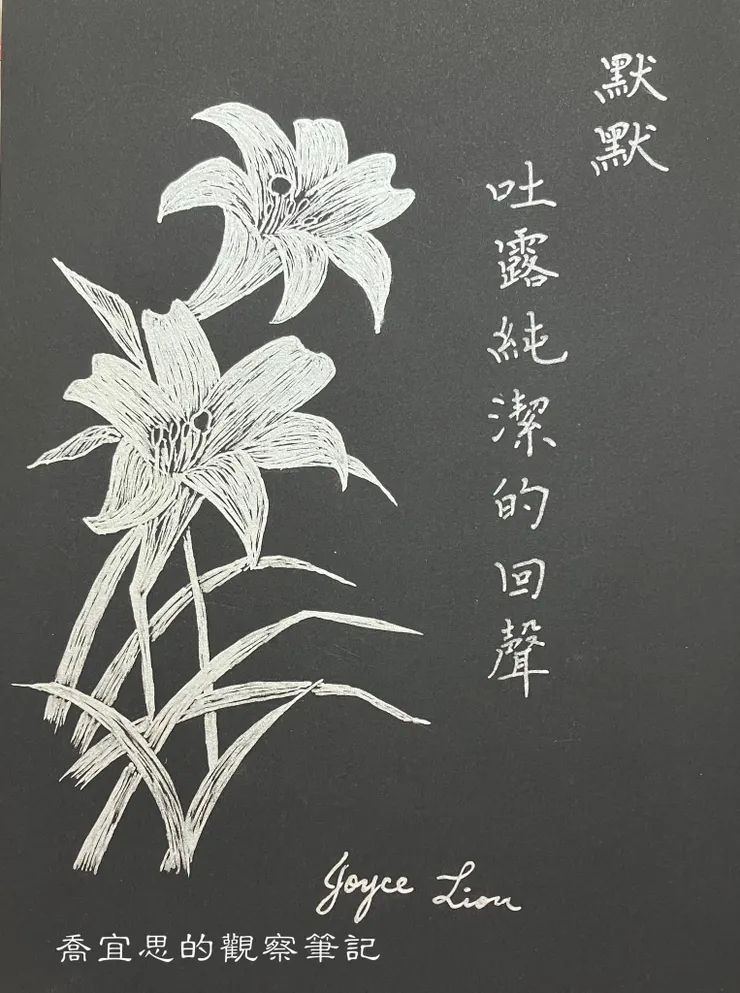 默默
吐露純潔的回聲
Joyce Liou
喬宜思的觀察筆記